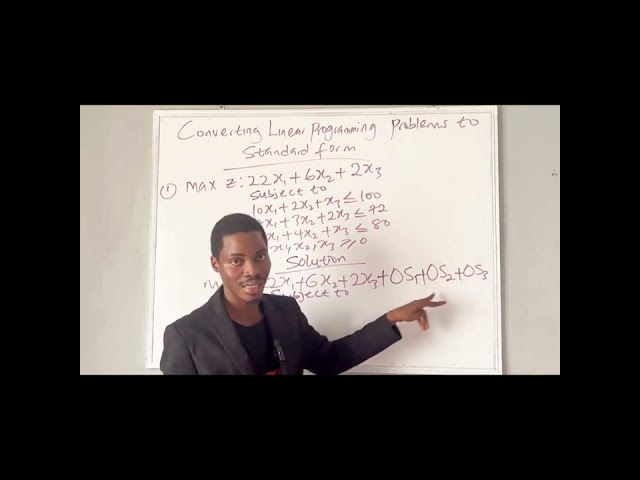 Converting Linear Programming Problems to
Standard form
① Max Z: 22x₁ + 6x₂ + 2x₃
Subject to
10x₁ + 2x₂ + x₃ ≤ 100
x₁ + 3x₂ + 2x₃ ≤ 72
x₁ + 4x₂ + x₃ ≤ 80
x₁, x₂, x₃ ≥ 0
Solution
2x₁ + 6x₂ + 2x₃ + 0S₁ + 0S₂ + 0S₃
Subject to